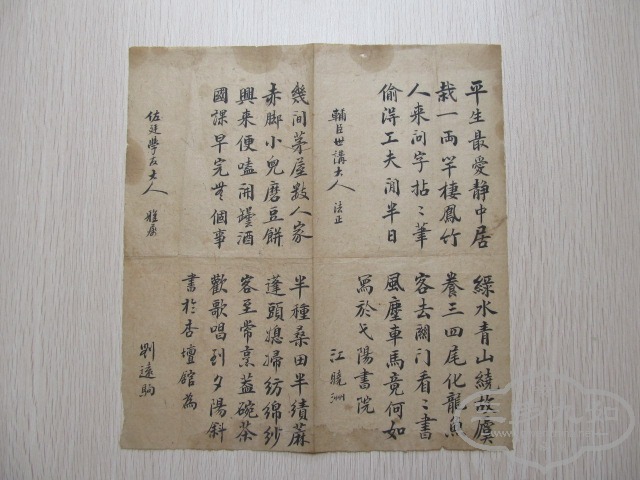 平生最愛靜中居
綠水青山繞故虞
栽一兩竿棲鳳竹
養三四尾化龍魚
人来问字拈〻筆
客去關门看〻書
偷得工夫閒半日
風塵車馬竟何如
寫於弋陽書院
輔臣世講大人 法正
江曉洲
幾间茅屋数人家
半種桑田半績蔴
赤脚小兒磨豆餅
蓬頭媳婦纺綿紗
興来便嗑開罎酒
客至常烹蓋碗茶
國課早完無個事
歡歌唱到夕陽斜
書於杏壇館為
佐廷學友大人 雅属
劉遠駒